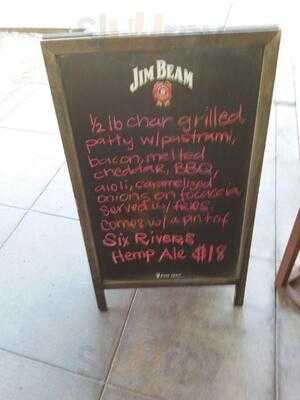 JIM BEAM
1/2 lb char grilled
patty w/pastrami,
bacon, melted
cheddar, BBQ,
aioli, caramelized
onions on focaccia
served w/ fries.
comes w/ a pint of
Six Rivers
Hemp Ale $18